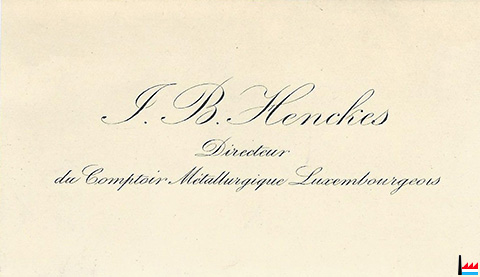 J. B. Henckes
Directeur
du Comptoir Métallurgique Luxembourgeois